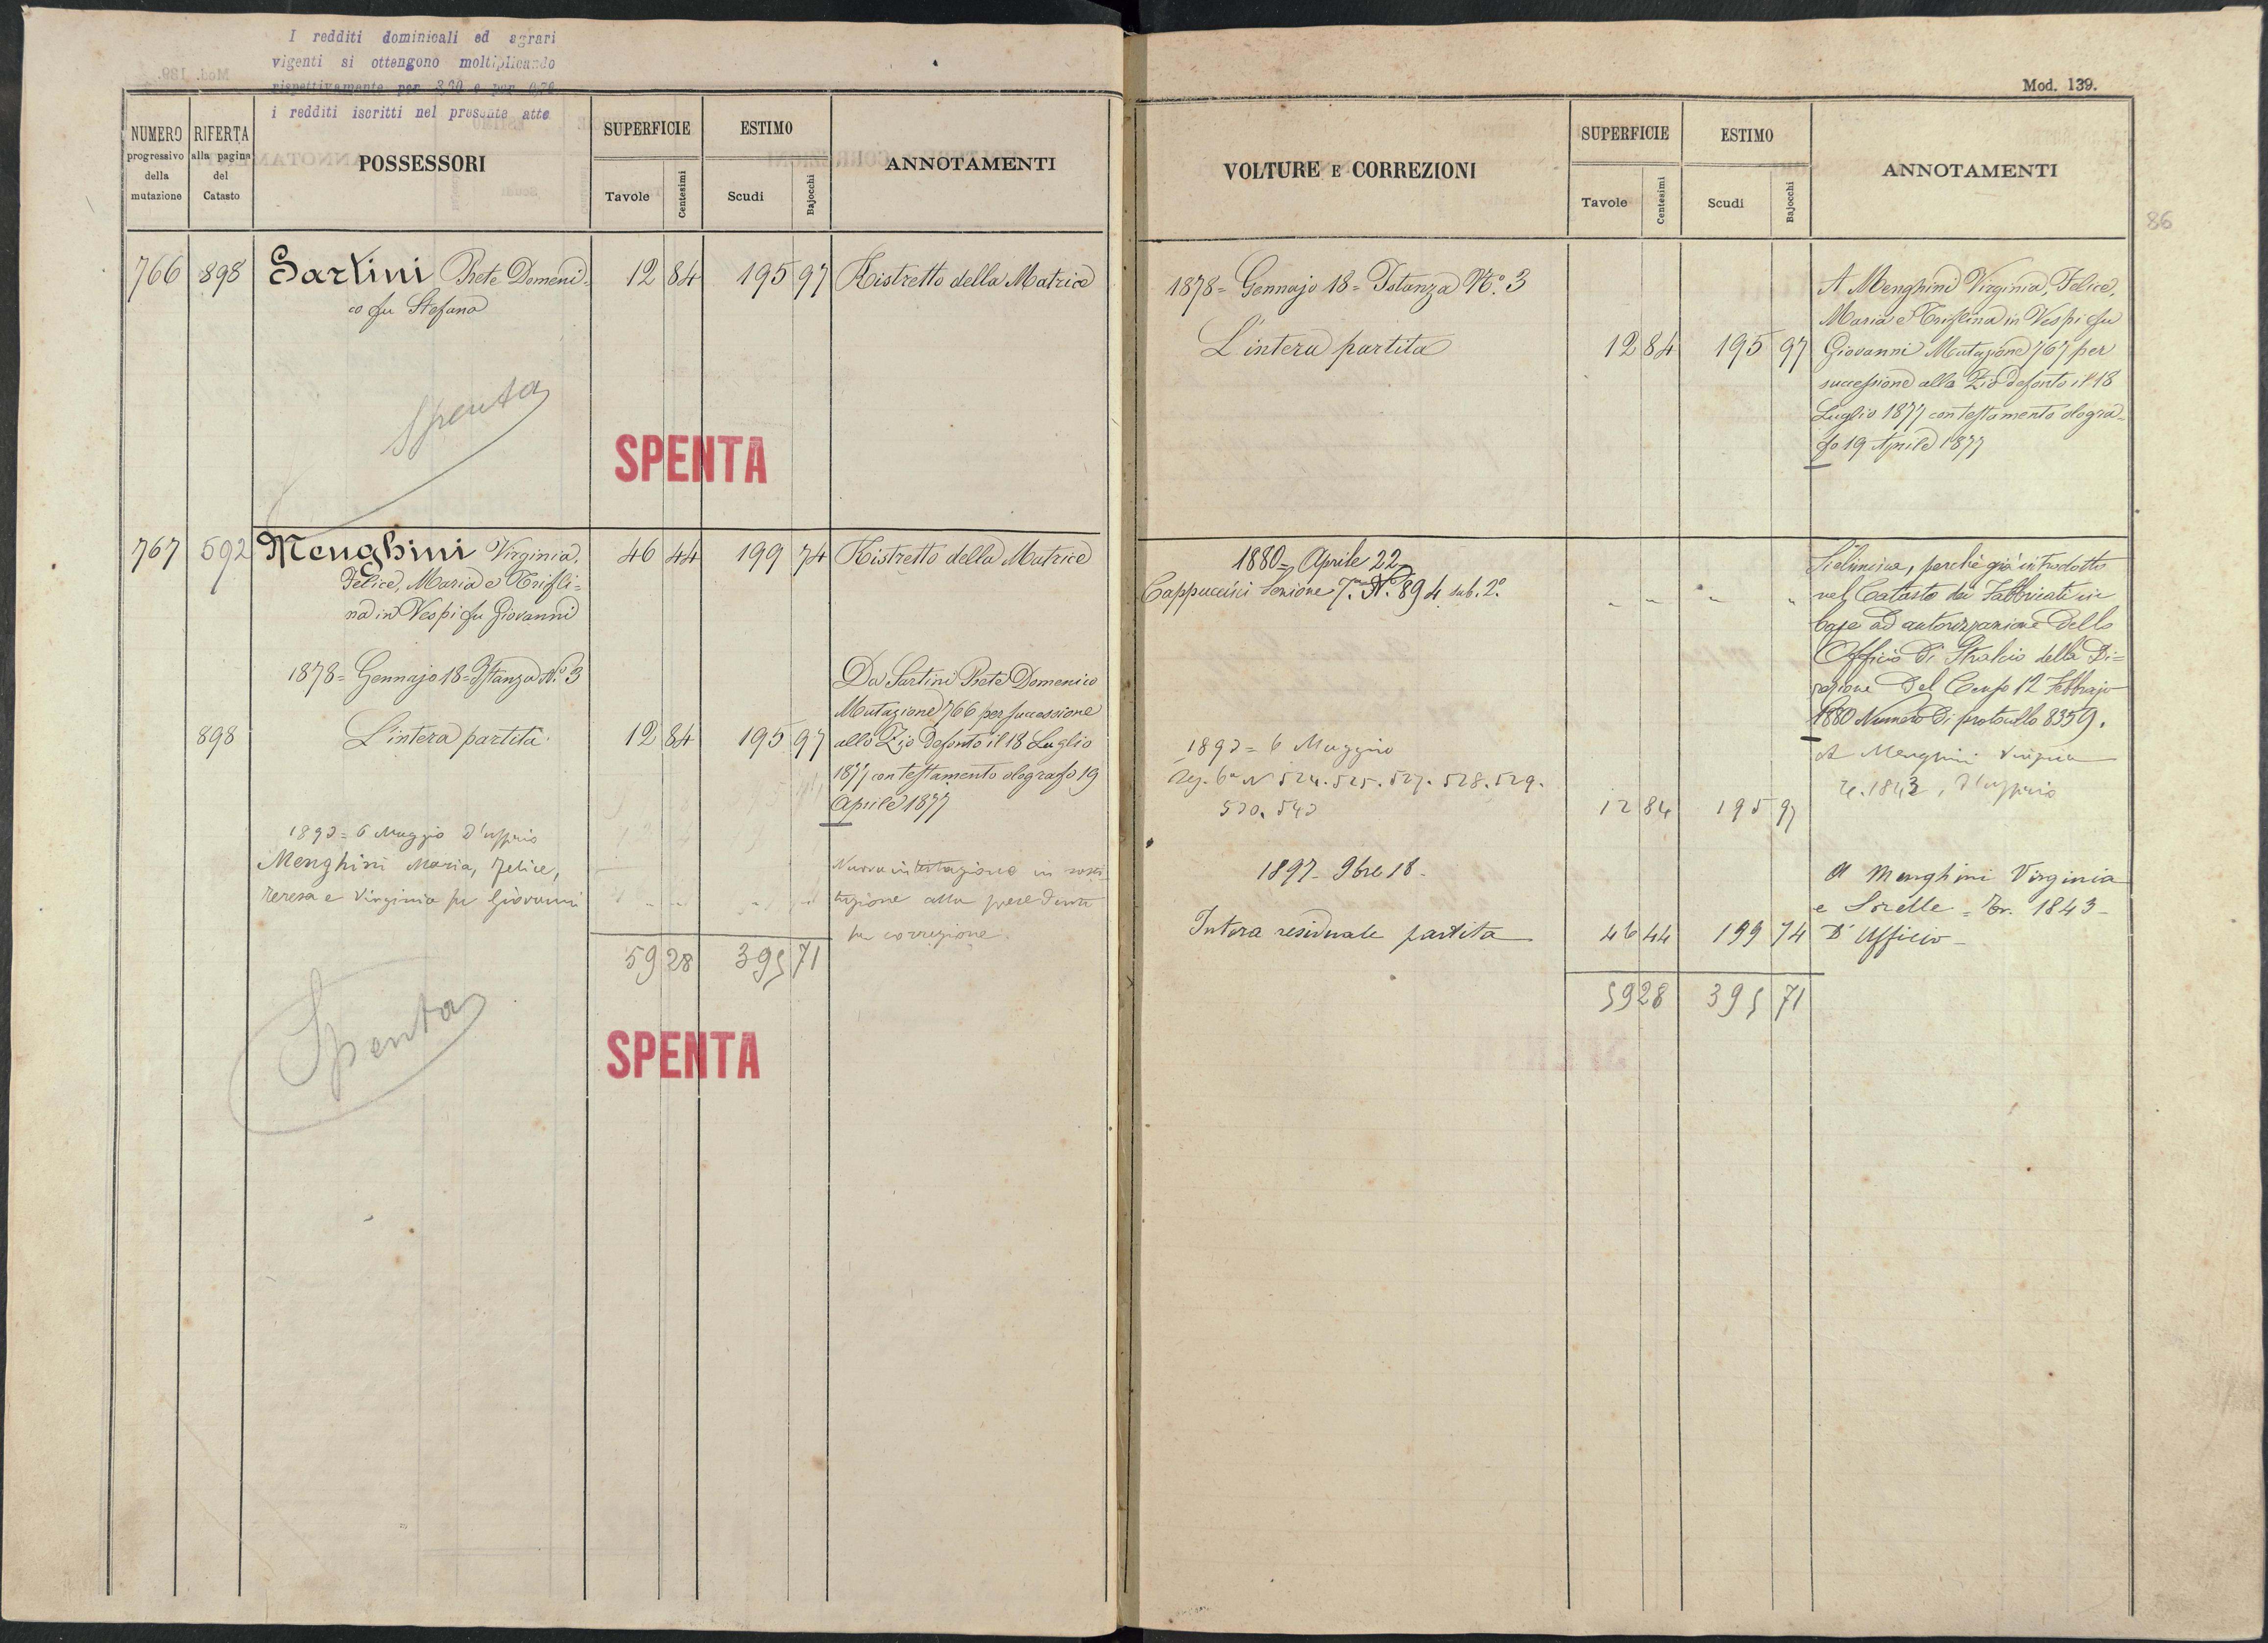 I redditi dominicali ed agrari
vigenti si ottengono moltiplicando
rispettivamente per 3,60 e per 0,76
i redditi iscritti nel presente atto
NUMERO progressivo della mutazione
RIFERTA alla pagina del Catasto
POSSESSORI
SUPERFICIE
Tavole Centesimi
ESTIMO
Scudi Bajocchi
ANNOTAMENTI
766 898 Sartini Prete Domeni- 12 84 195 97 Ristretto della Matrice
co fu Stefano
Spenta
SPENTA
767 592 Menghini Virginia, 46 44 199 74 Ristretto della Matrice
Felice, Maria e Trifli-
na in Vespi fu Giovanni
1878= Gennajo 18= Istanza No. 3
Da Sartini Prete Domenico
Mutazione 766 per successione
898 L'intera partita 12 84 195 97 allo Zio defonto il 18 Luglio
1877 con testamento olografo 19
Aprile 1877
1893= 6 Maggio d'ufficio
Menghini Maria, Felice, Nuova intestazione in sosti-
Teresa e Virginia fu Giovanni " " " " tuzione alla precedente
per correzione.
59 28 395 71
Spenta
SPENTA
Mod. 139.
VOLTURE E CORREZIONI
SUPERFICIE
Tavole Centesimi
ESTIMO
Scudi Bajocchi
ANNOTAMENTI
86
1878= Gennajo 18= Istanza No. 3
A Menghini Virginia, Felice,
Maria e Triflina in Vespi fu
L'intera partita 12 84 195 97 Giovanni Mutazione 767 per
successione alla Zio defonto il 18
Luglio 1877 con testamento ologra-
fo 19 Aprile 1877
1880= Aprile 22
Cappuccini Sezione 7a. N. 894 sub. 2o. " " " "
Si elimina, perchè già introdotto
nel Catasto dei Fabbricati in
base ad autorizzazione dello
Officio di Stralcio della Di=
rezione del Censo 12 Febbrajo
1880 Numero di protocollo 8359.
1893= 6 Maggio
A Menghini Virginia
Sez. 6a N 524. 525. 527. 528. 529.
Tr. 1843, d'ufficio
530. 543 12 84 195 97
1897- 9bre 18-
A Menghini Virginia
e Sorelle = Tr. 1843-
Intera residuale partita 46 44 199 74 D'Ufficio-
59 28 395 71